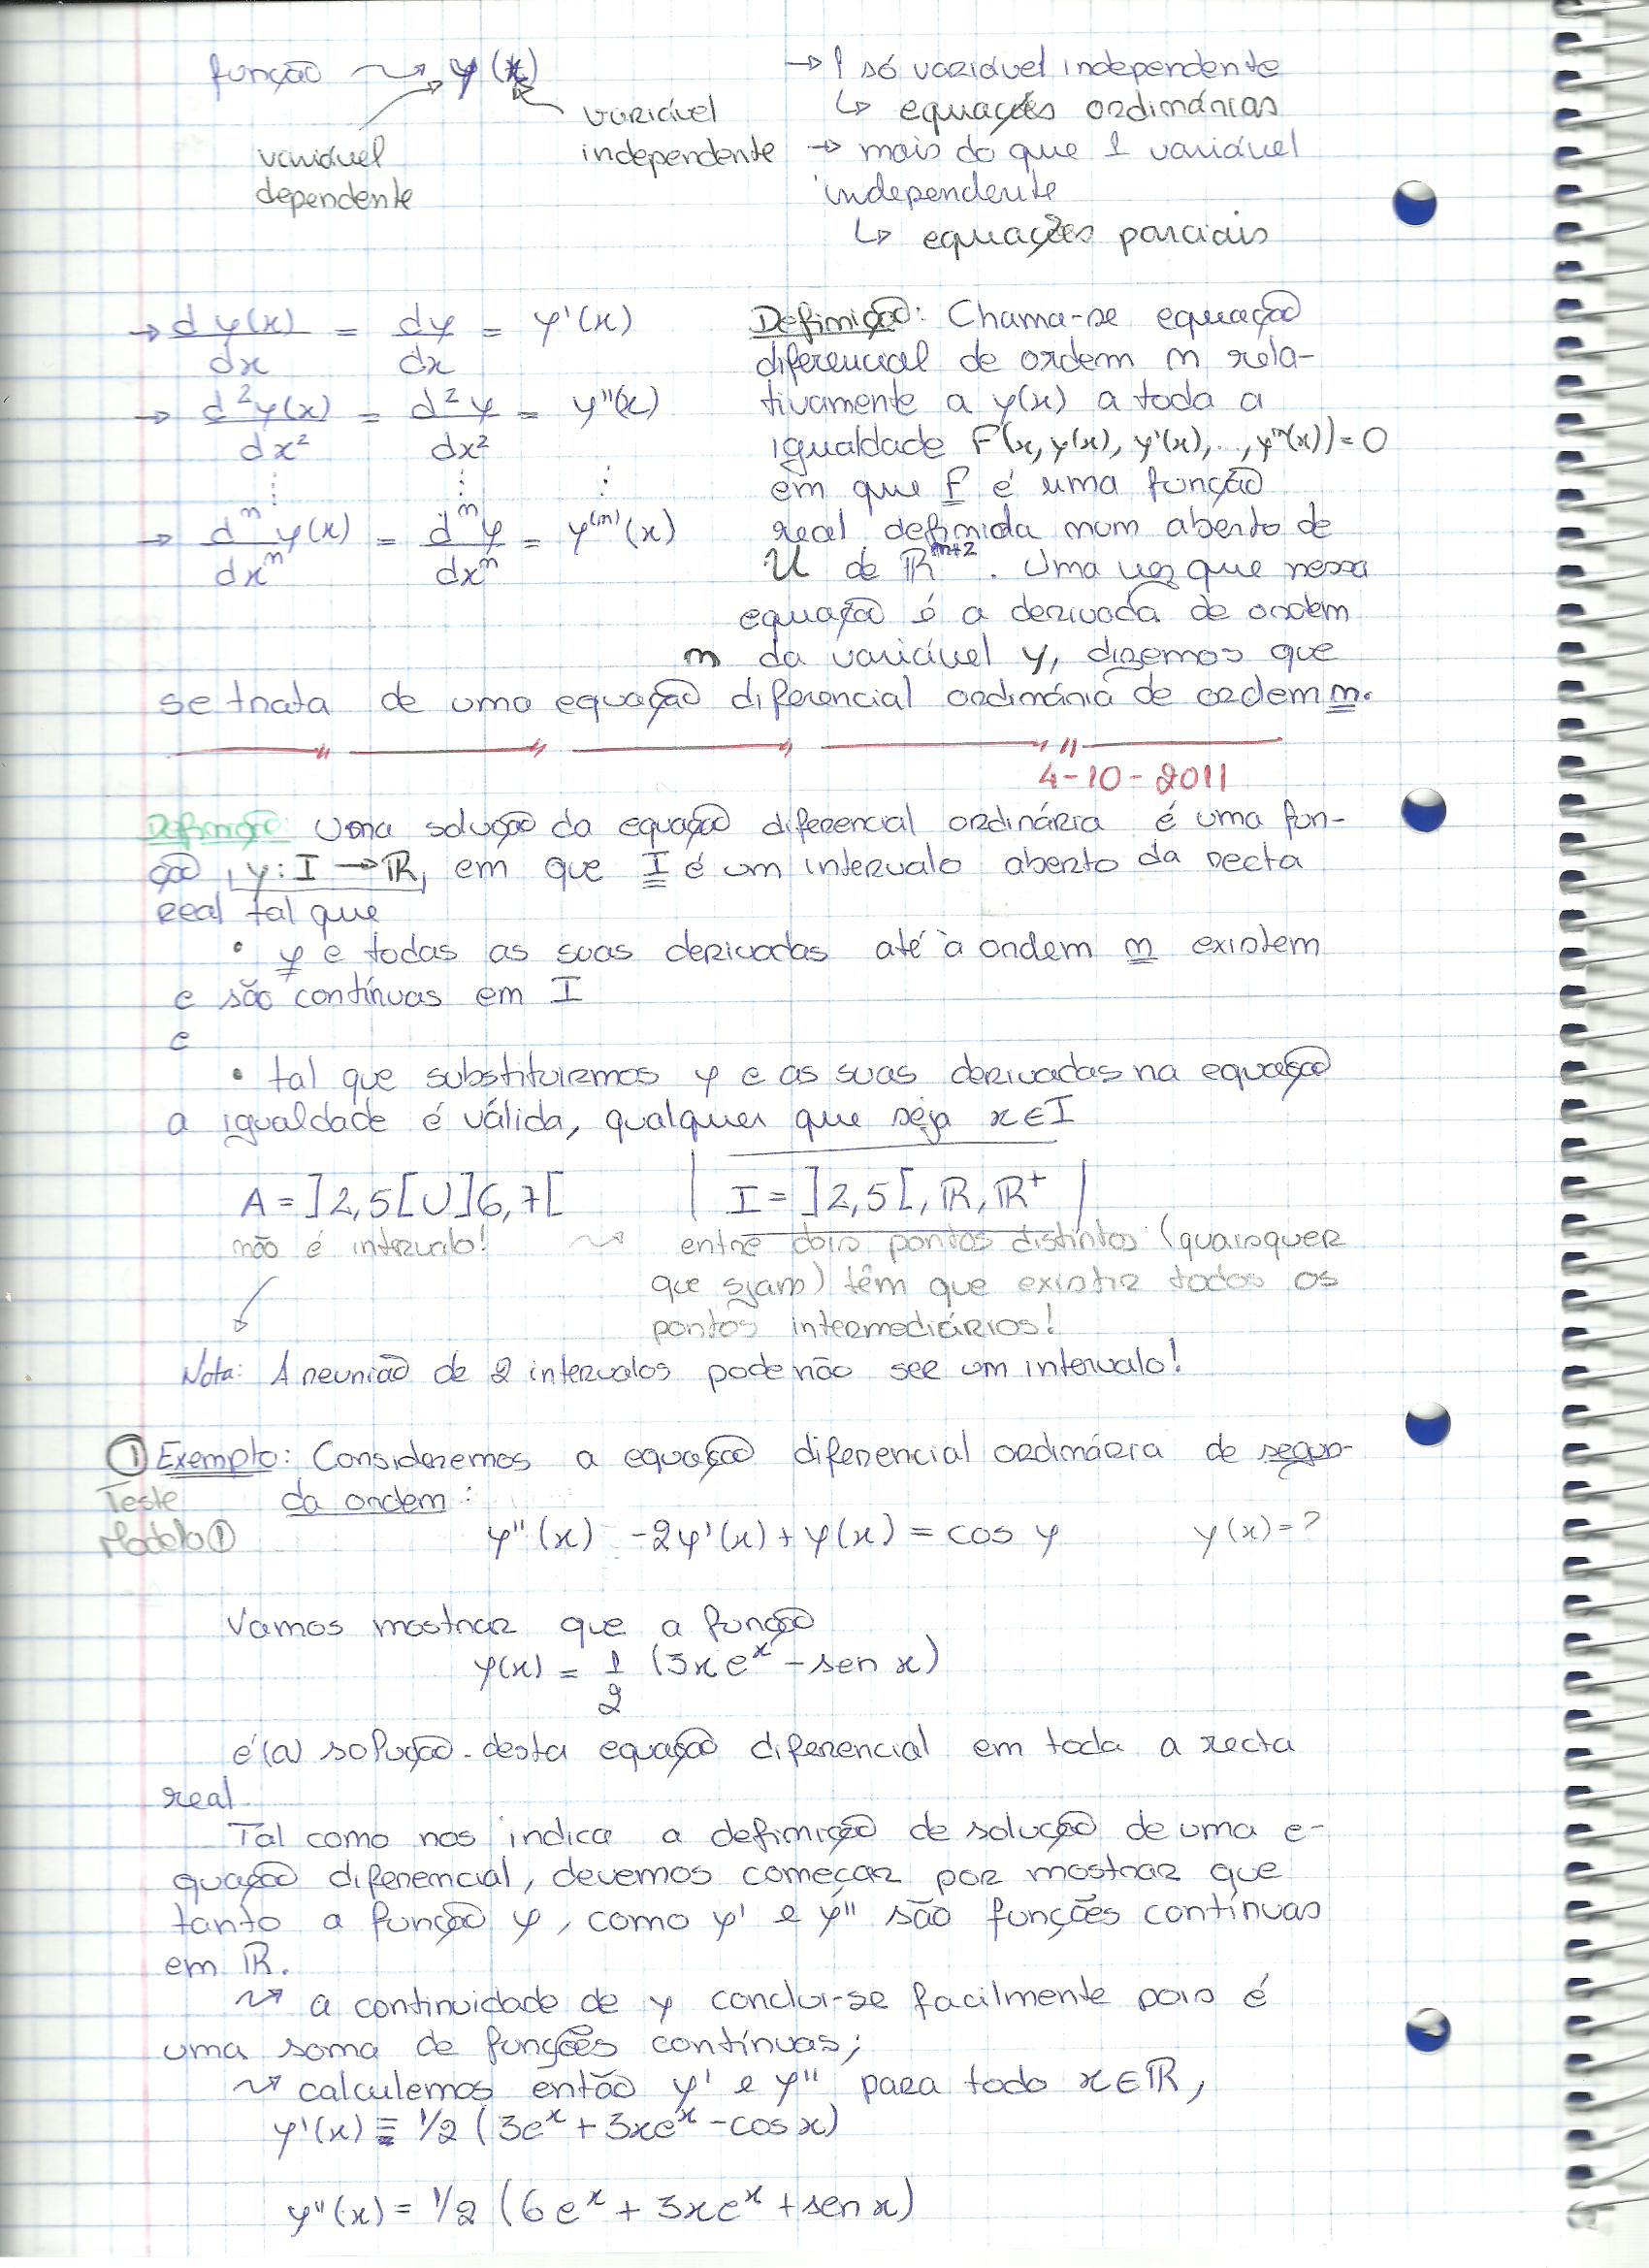 função ⤳ y(x)
variável
dependente
variável
independente
→ 1 só variável independente
↳ equações ordinárias
→ mais do que 1 variável
independente
↳ equações parciais
→ dy(x)/dx = dy/dx = y'(x)
→ d²y(x)/dx² = d²y/dx² = y''(x)
⋮ ⋮ ⋮
→ dⁿy(x)/dxⁿ = dⁿy/dxⁿ = y⁽ⁿ⁾(x)
Definição: Chama-se equação
diferencial de ordem n rela-
tivamente a y(x) a toda a
igualdade F(x, y(x), y'(x), ..., yⁿ(x)) = 0
em que F é uma função
real definida num aberto de
U de ℝⁿ⁺². Uma vez que nessa
equação é a derivada de ordem
n da variável y, dizemos que
se trata de uma equação diferencial ordinária de ordem n.
4-10-2011
Definição: Uma solução da equação diferencial ordinária é uma fun-
ção, y: I → ℝ, em que I é um intervalo aberto da recta
real tal que
• y e todas as suas derivadas até à ordem n existem
e são contínuas em I
e
• tal que substituirmos y e as suas derivadas na equação
a igualdade é válida, qualquer que seja x∈I
A = ]2,5[ U ]6,7[ | I = ]2,5[, ℝ, ℝ⁺ |
não é intervalo! ⤳ entre dois pontos distintos (quaisquer
que sejam) têm que existir todos os
pontos intermediários!
Nota: A reunião de 2 intervalos pode não ser um intervalo!
① Exemplo: Consideremos a equação diferencial ordinária de segun-
Teste da ordem:
Modelo ① y''(x) - 2y'(x) + y(x) = cos y y(x) = ?
Vamos mostrar que a função
y(x) = 1/2 (3xeˣ - sen x)
é (a) solução desta equação diferencial em toda a recta
real.
Tal como nos indica a definição de solução de uma e-
quação diferencial, devemos começar por mostrar que
tanto a função y, como y' e y'' são funções contínuas
em ℝ.
⤳ a continuidade de y conclui-se facilmente pois é
uma soma de funções contínuas;
⤳ calculemos então y' e y'' para todo x∈ℝ,
y'(x) = 1/2 (3eˣ + 3xeˣ - cos x)
y''(x) = 1/2 (6eˣ + 3xeˣ + sen x)